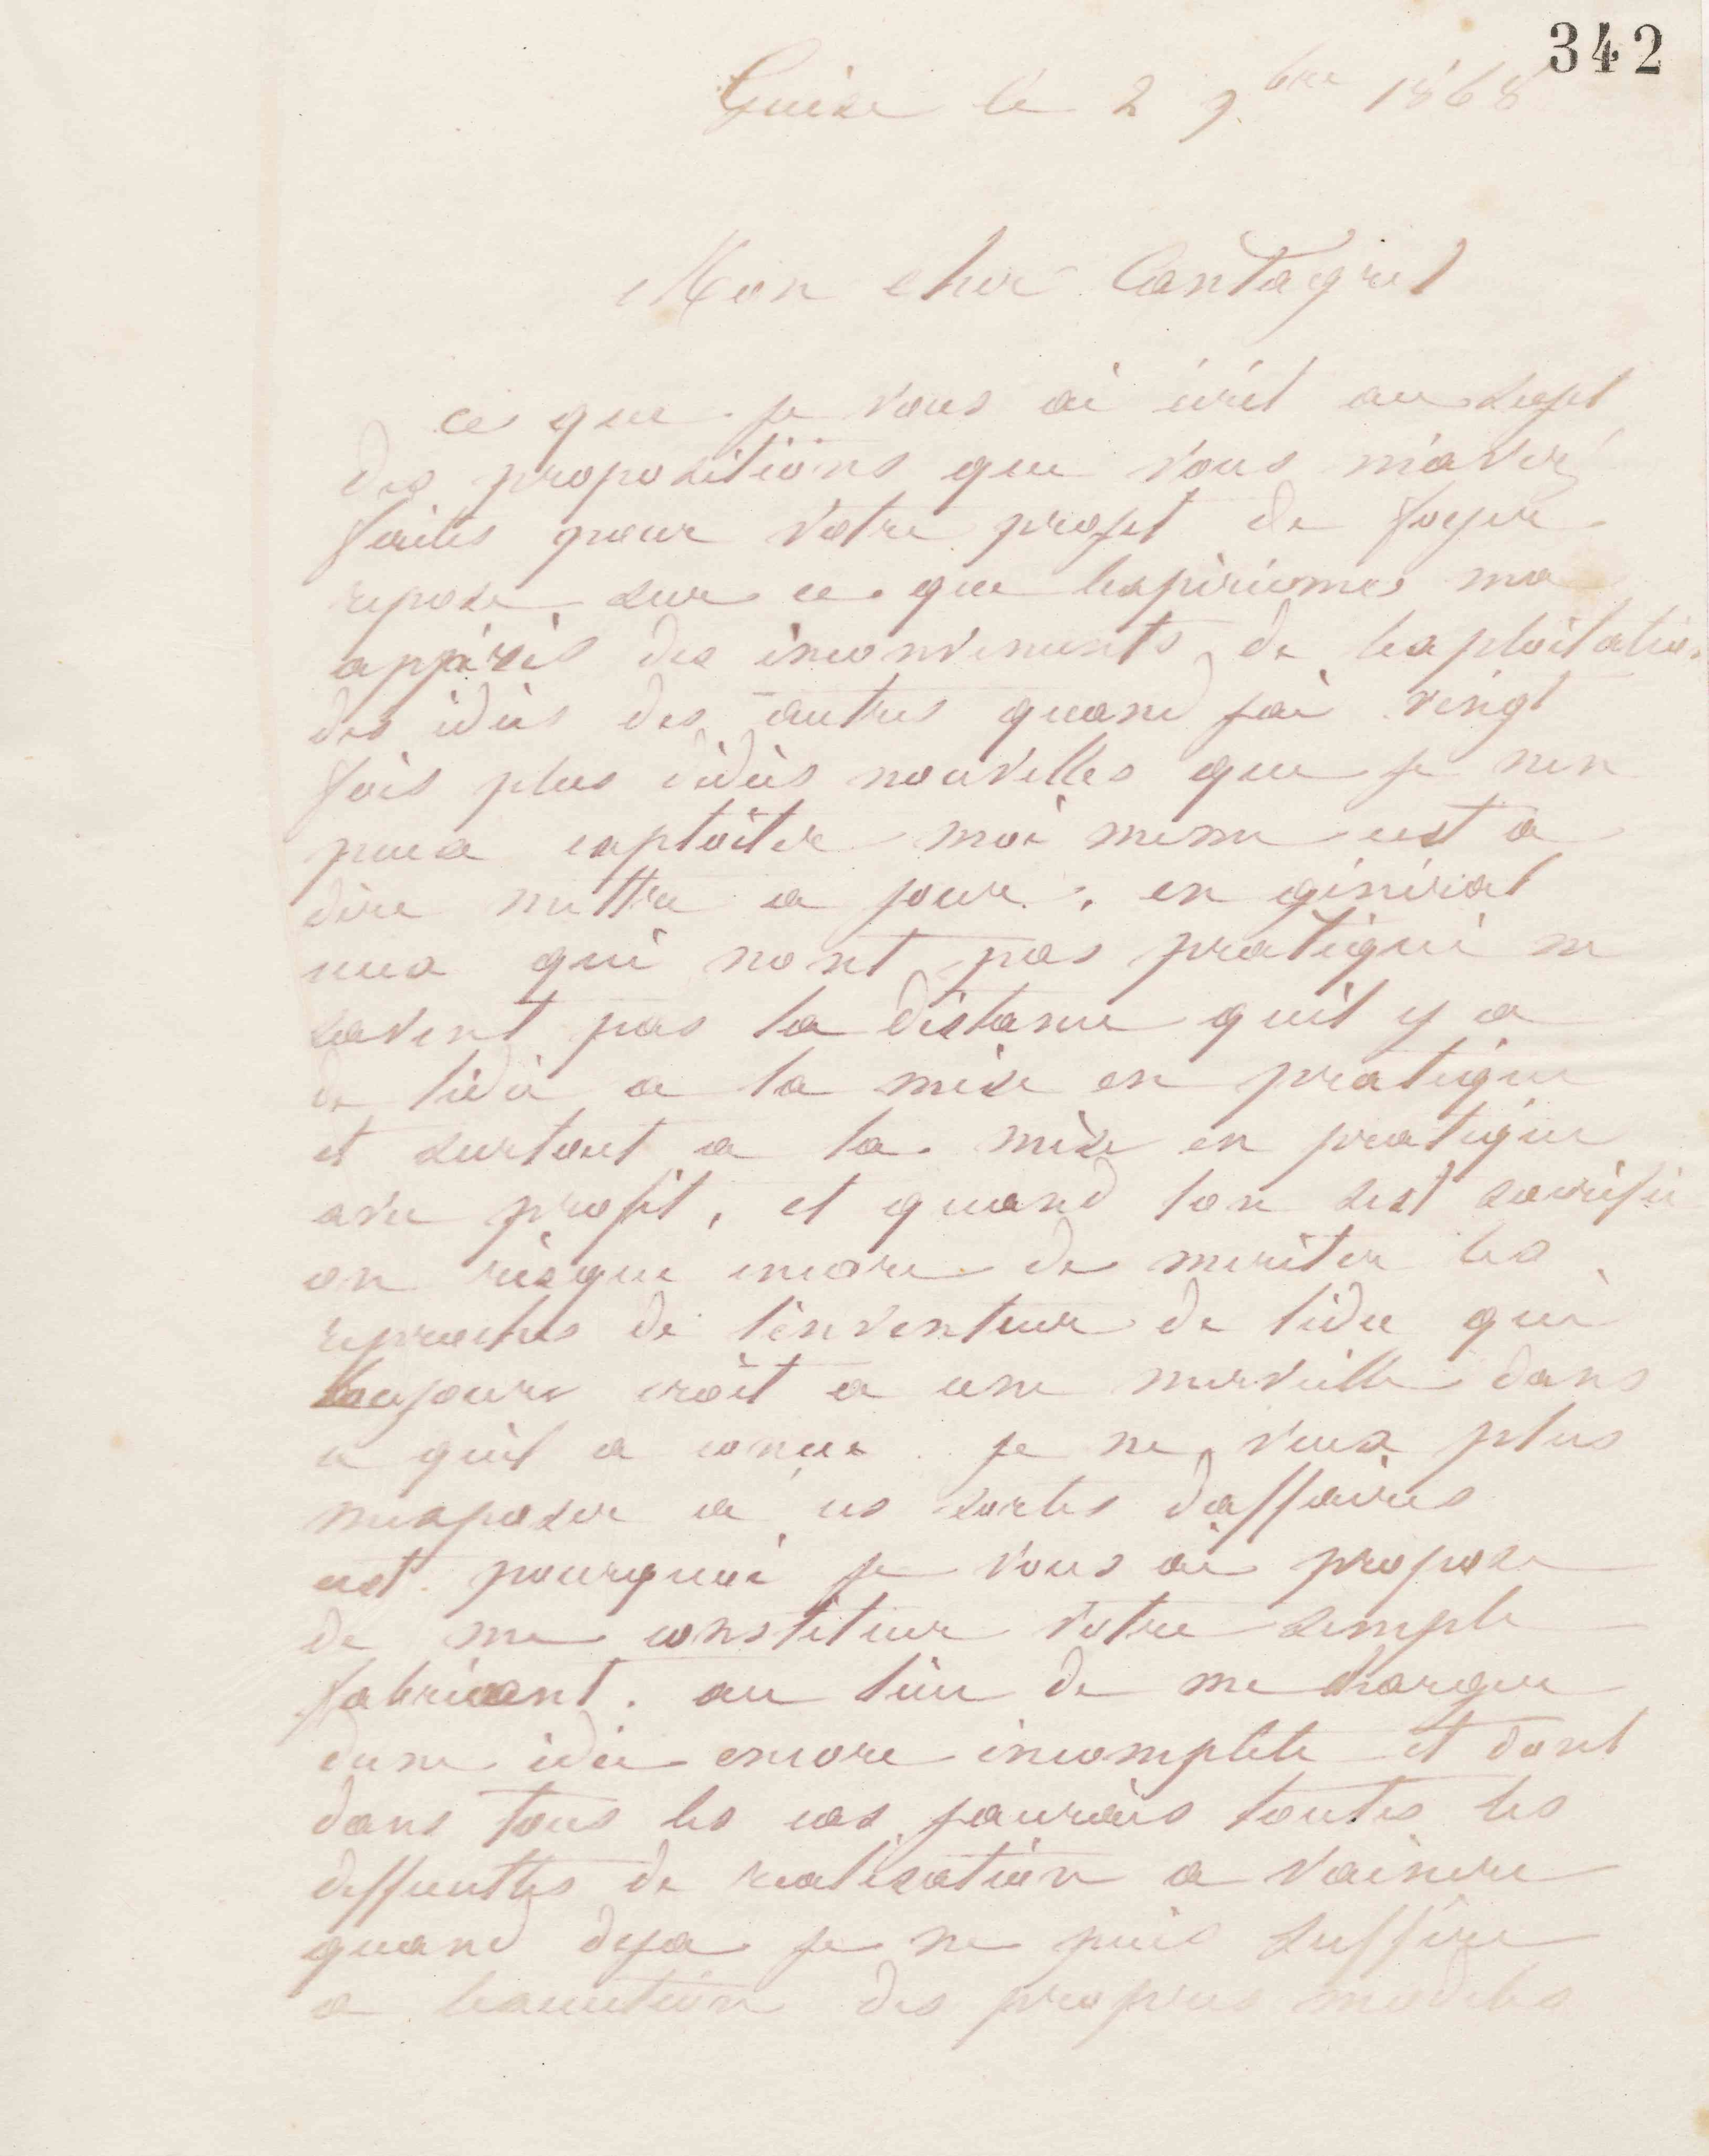 342
Guise le 2 9.bre 1868
Mon cher Cantagrel
ce que je vous ai écrit au sujet
des propositions que vous m'avez
faites pour votre projet de foyer
repose sur ce que lexpérience ma
appris des inconvenients de lexploitation
des idées des autres quand jai vingt
fois plus didées nouvelles que je nen
peux exploiter moi meme cest a
dire mettre a jour. en général
ceux qui nont pas pratiqué ne
savent pas la distance quil y a
de lidée a la mise en pratique
et surtout a la mise en pratique
avec profit, et quand lon sest sacrifié
on risque encore de meriter les
reproches de linventeur de lidée qui
toujours croit a une merveille dans
ce quil a conçu je ne veux plus
mexposer a ces sortes daffaires
cest pourquoi je vous ai propose
de me constituer votre simple
fabricant. au lieu de me charger
dune idée encore incomplete et dont
dans tous les cas jaurais toutes les
difficultes de realisation a vaincre
quand deja je ne puis suffire
a lexecution des propres modeles